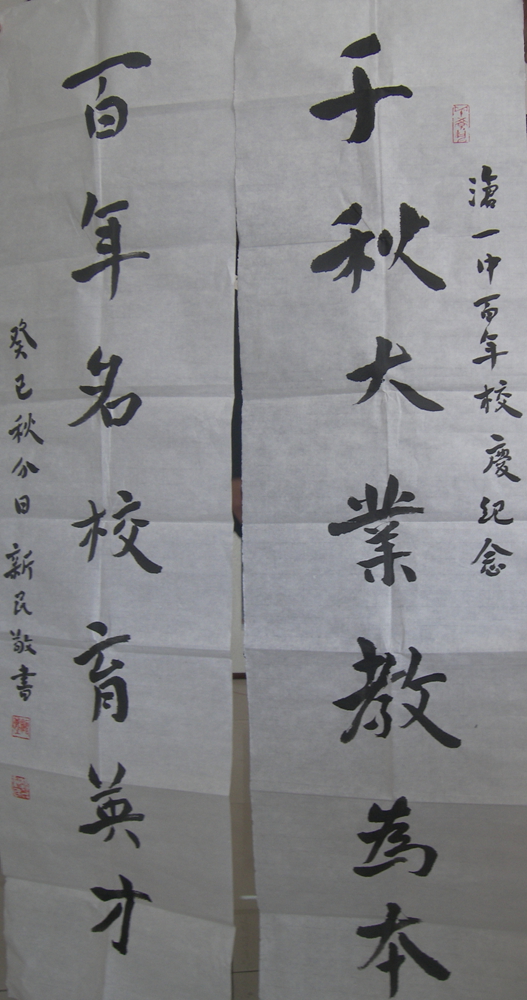 滄一中百年校慶紀念
千秋大業教為本
百年名校育英才
癸巳秋分日新民敬書